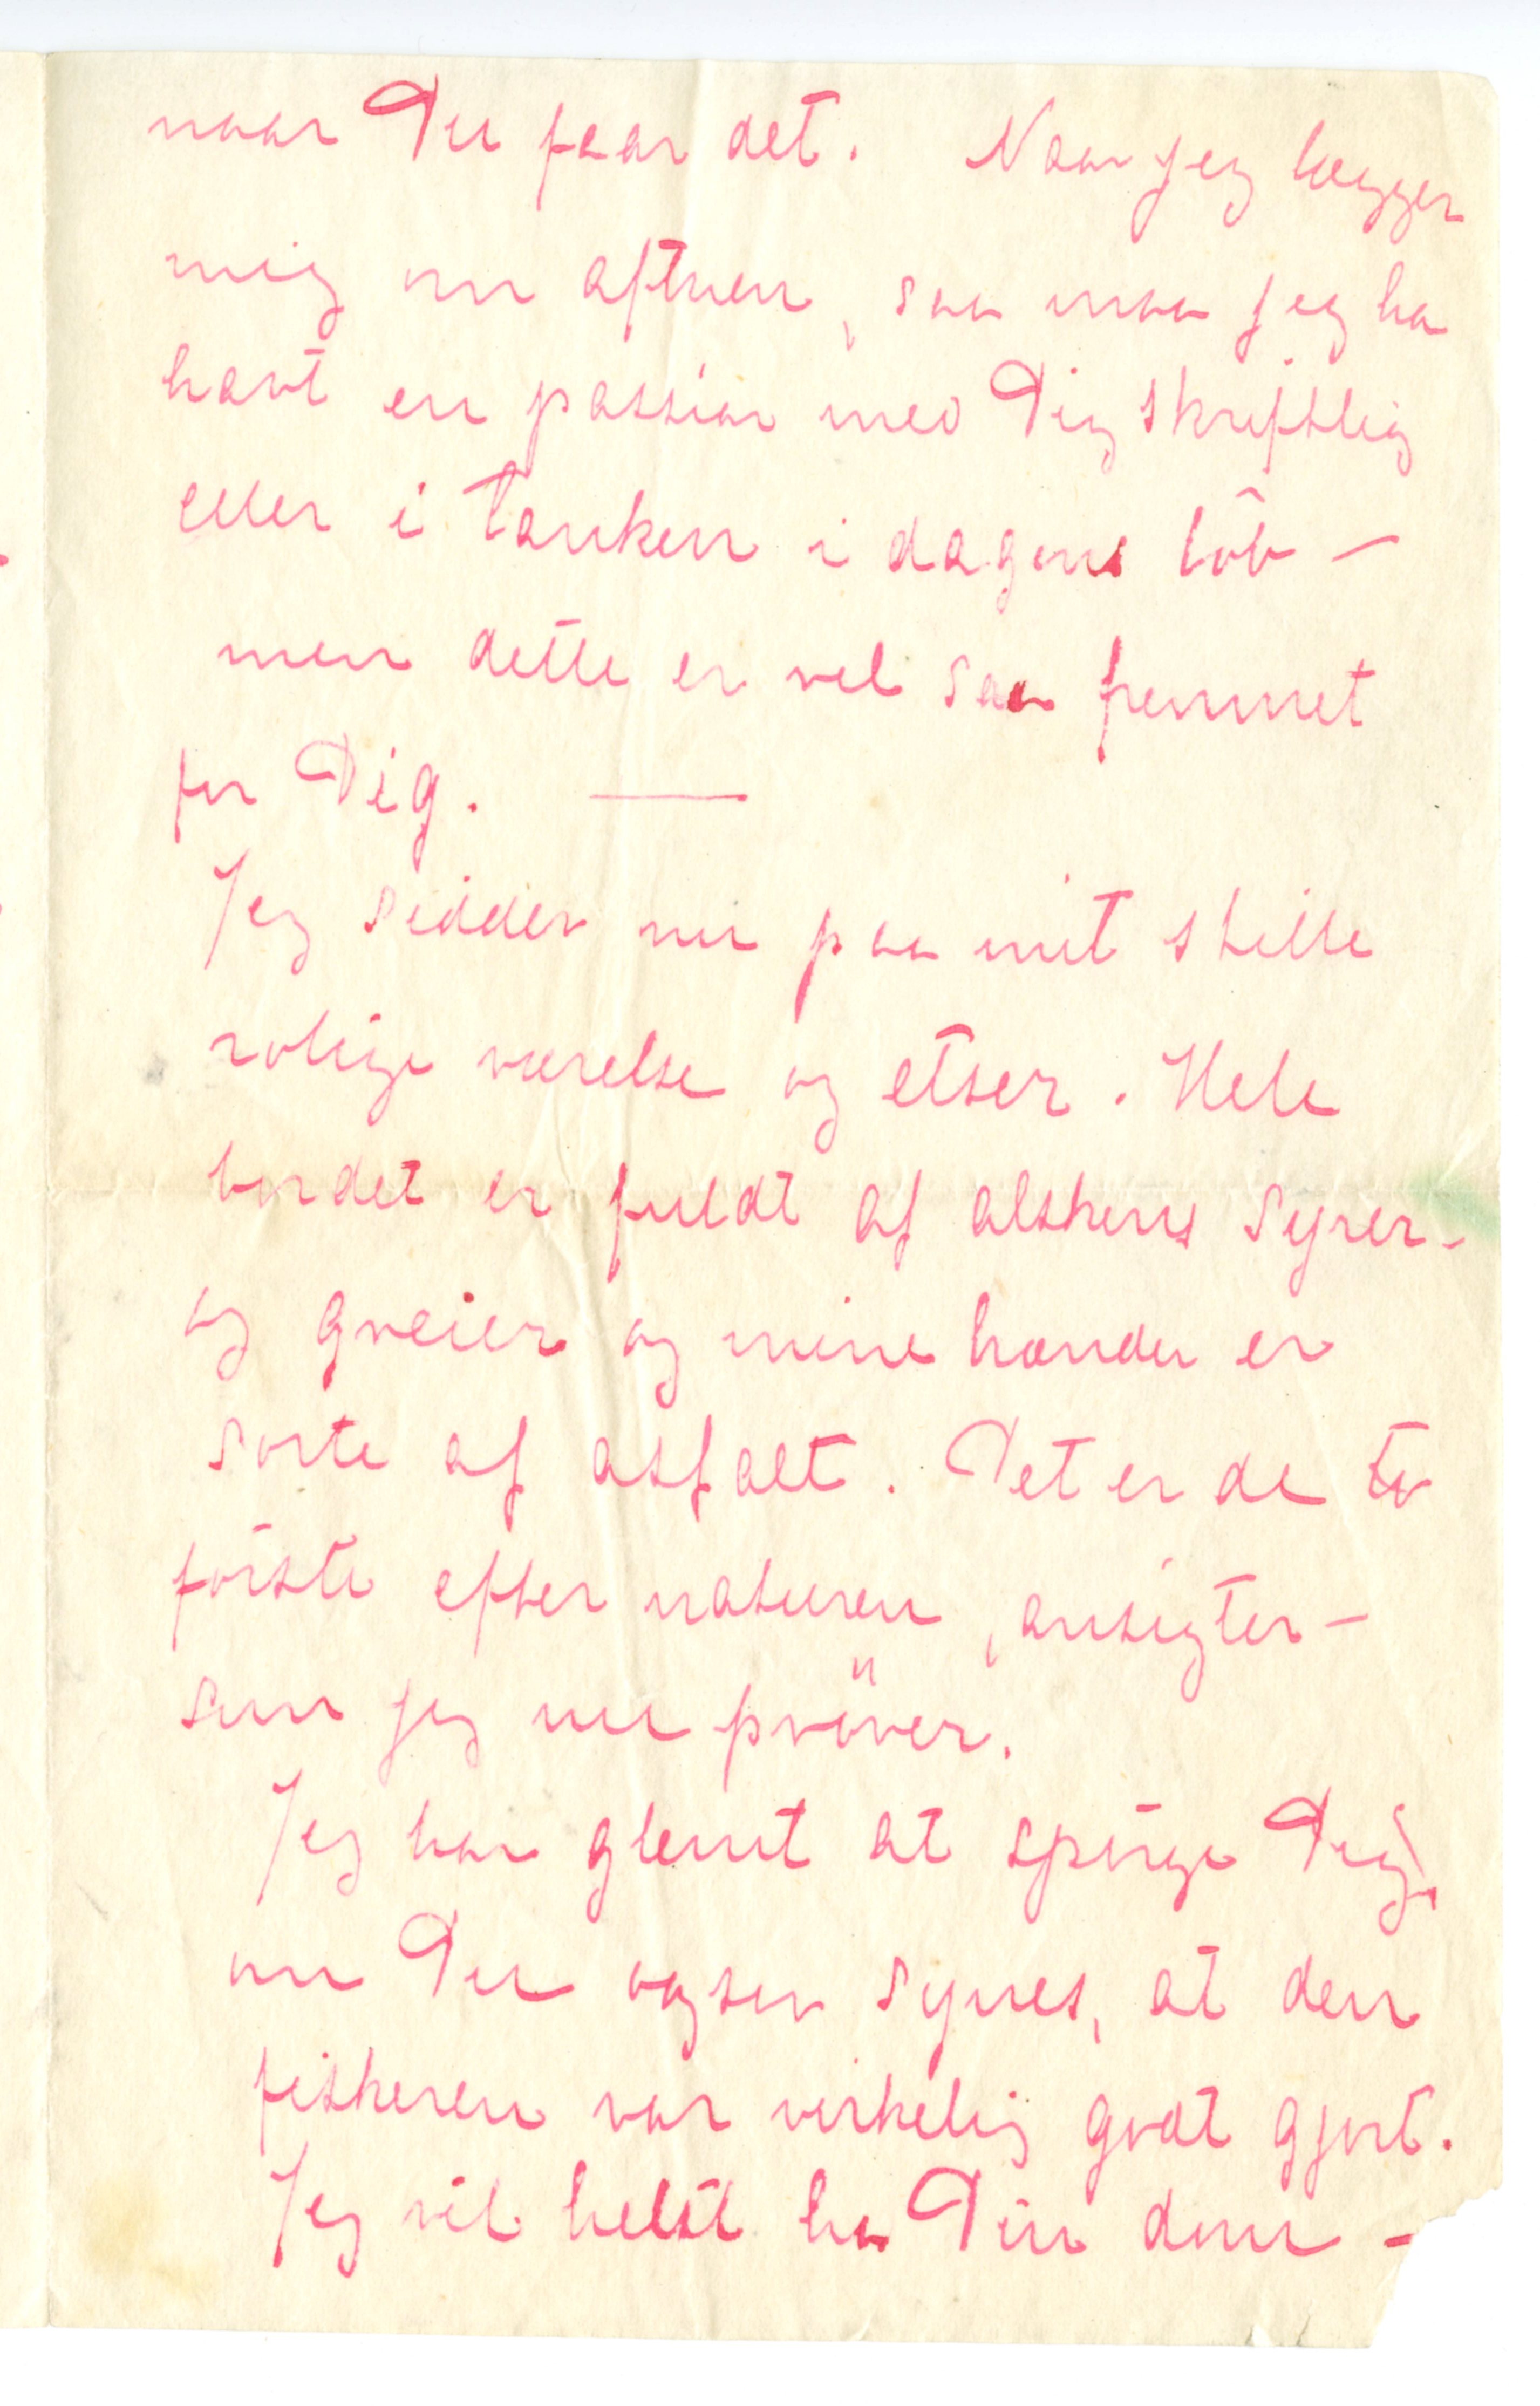 naar Du faar det. Naar jeg lægger
mig om aftnen, saa maa jeg ha
havt en passiar med Dig skriftlig
eller i tanken i dagens löb –
men dette er vel saa fremmet
for Dig. —
Jeg sidder nu paa mit stille
rolige værelse og etser. Hele
bordet er fuldt af alskens syrer –
og greier og mine hænder er
sorte af asfalt. Det er de to
förste efter naturen, ansigter –
som jeg nu pröver.
Jeg har glemt at spörge Dig,
om Du ogsaa synes, at den
fiskeren var virkelig godt gjort.
Jeg vil helst ha Din dom –